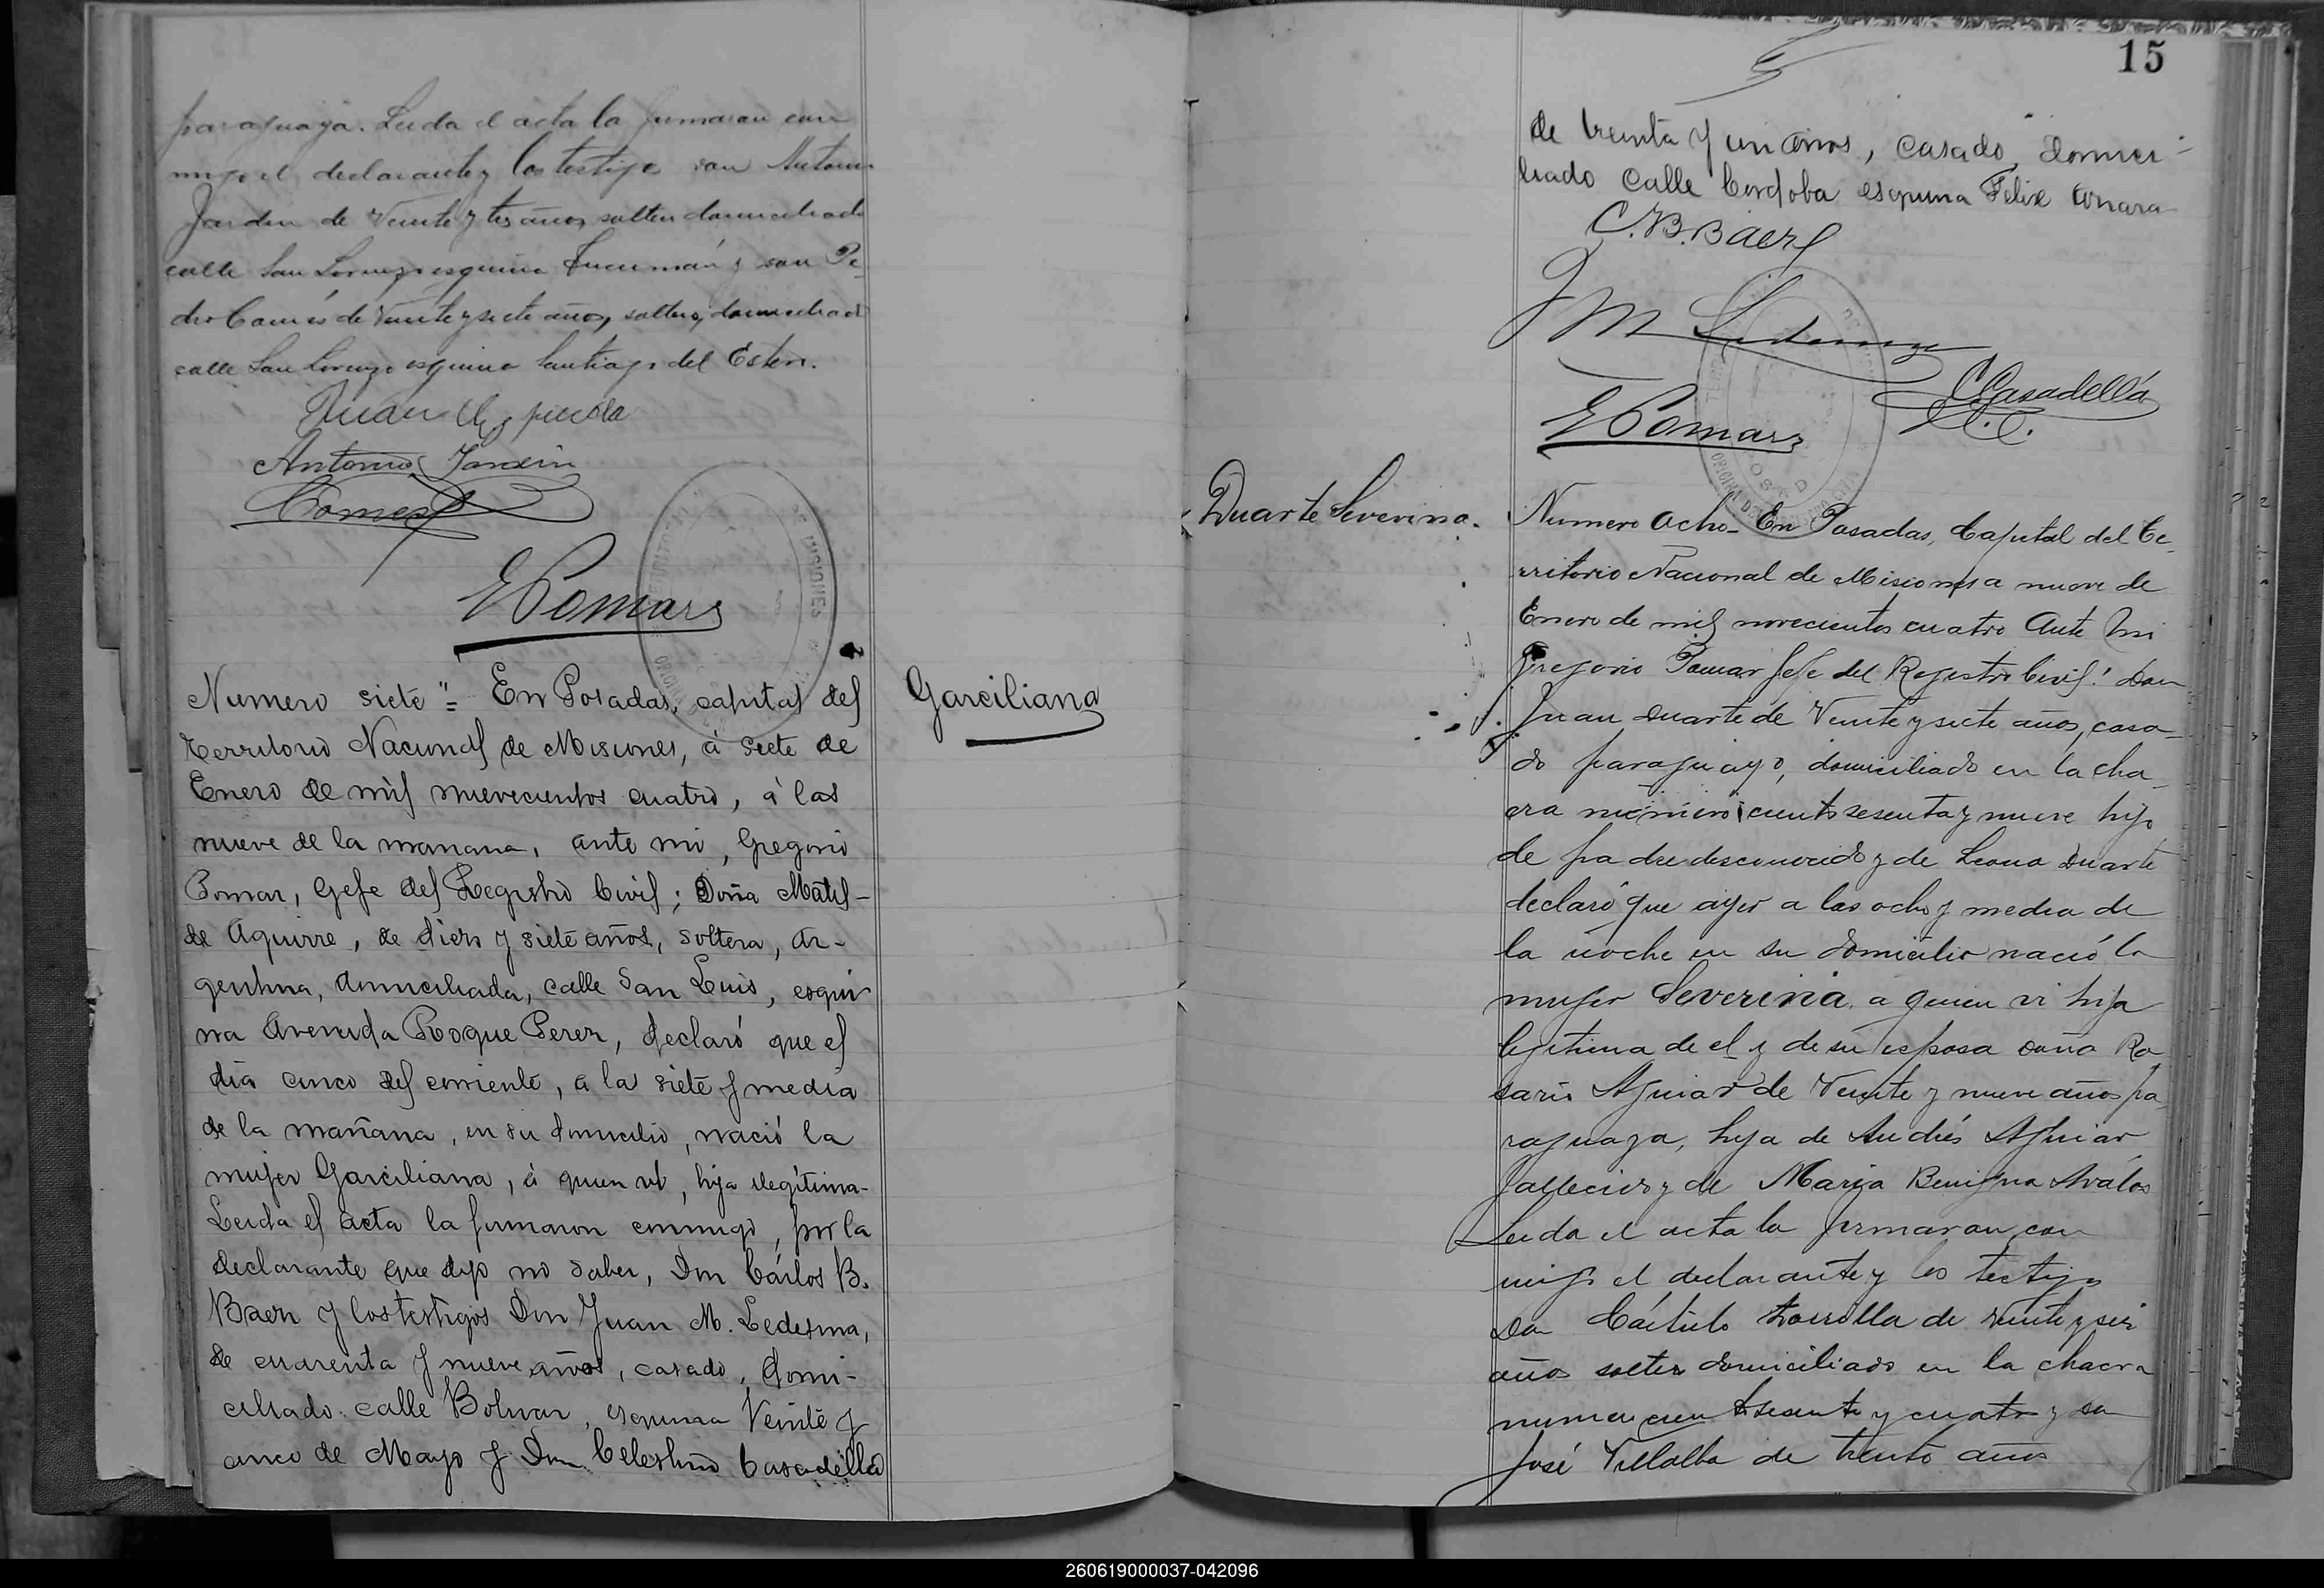 paraguaya. Leida el acta la firmaron con
migo el declarante y los testigos don Antonio
Jardin de Veinte y tres años, soltero domiciliado
calle San Lorenzo esquina Tucumán y don Pe-
dro Comes de Veinte y siete años, soltero, domiciliado
calle San Lorenzo esquina Santiago del Estero.
Juan
Antonio Jardin
Comes
G Pomar
Numero siete "= En Posadas, capital del
Territorio Nacional de Misiones, á siete de
Enero de mil nuevecientos cuatro, á las
nueve de la manana, ante mi, Gregorio
Pomar, Gefe del Registro Civil; Doña Matil-
de Aguirre, de diez y siete años, soltera, ar-
gentina, domiciliada, calle San Luis, esqui-
na Avenida Roque Perez, declaró que el
dia cinco del corriente, a las siete y media
de la mañana, en su domicilio, nació la
mujer Garciliana, á quien ví, hija ilegítima-
Leida el acta la firmaron conmigo, por la
declarante que dijo no saber, Don Cárlos B.
Baez y los testigos Don Juan M. Ledesma,
de cuarenta y nueve años, casado, domi-
ciliado calle Bolivar, esquina Veinte y
cinco de Mayo y Don Celestino Casadellá
Garciliana
15
de treinta y un años, casado, domici-
liado calle Cordoba esquina Felix Azara
C. B. Baez
J M Ledesma
C Casadellá
G Pomar
Duarte Severina.
Numero ocho- En Posadas, Capital del Te-
rritorio Nacional de Misiones a nueve de
Enero de mil novecientos cuatro ante mi
Gregorio Pomar Jefe del Registro Civil: Don
Juan Duarte de Veinte y siete años, casa-
do paraguayo, domiciliado en la cha
cra número ciento sesenta y nueve hijo
de padre desconocido y de Leona Duarte
declaró que ayer a las ocho y media de
la noche en su domicilio nació la
mujer Severina a quien vi hija
legitima de el y de su esposa doña Ro
sario Aguiar de Veinte y nueve años pa
raguaya, hija de Andrés Aguiar
fallecido y de Maria Benigna Avalos
Leida el acta la firmaron con
migo el declarante y los testigos
Don Cástulo de Veinte y seis
años soltero domiciliado en la chacra
numero ciento sesenta y cuatro y don
José Villalba de treinta años